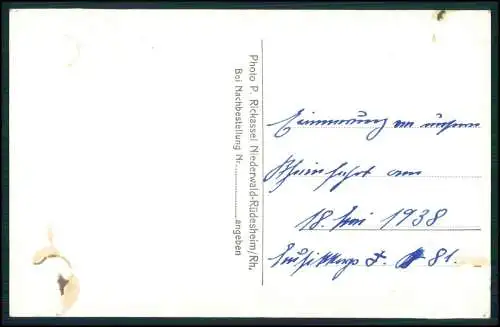 Photo P. Rickassel Niederwald-Rüdesheim/Rh.
Bei Nachbestellung Nr. ............ angeben
Erinnerung an unsere
Rheinfahrt am
18. Juni 1938
81.